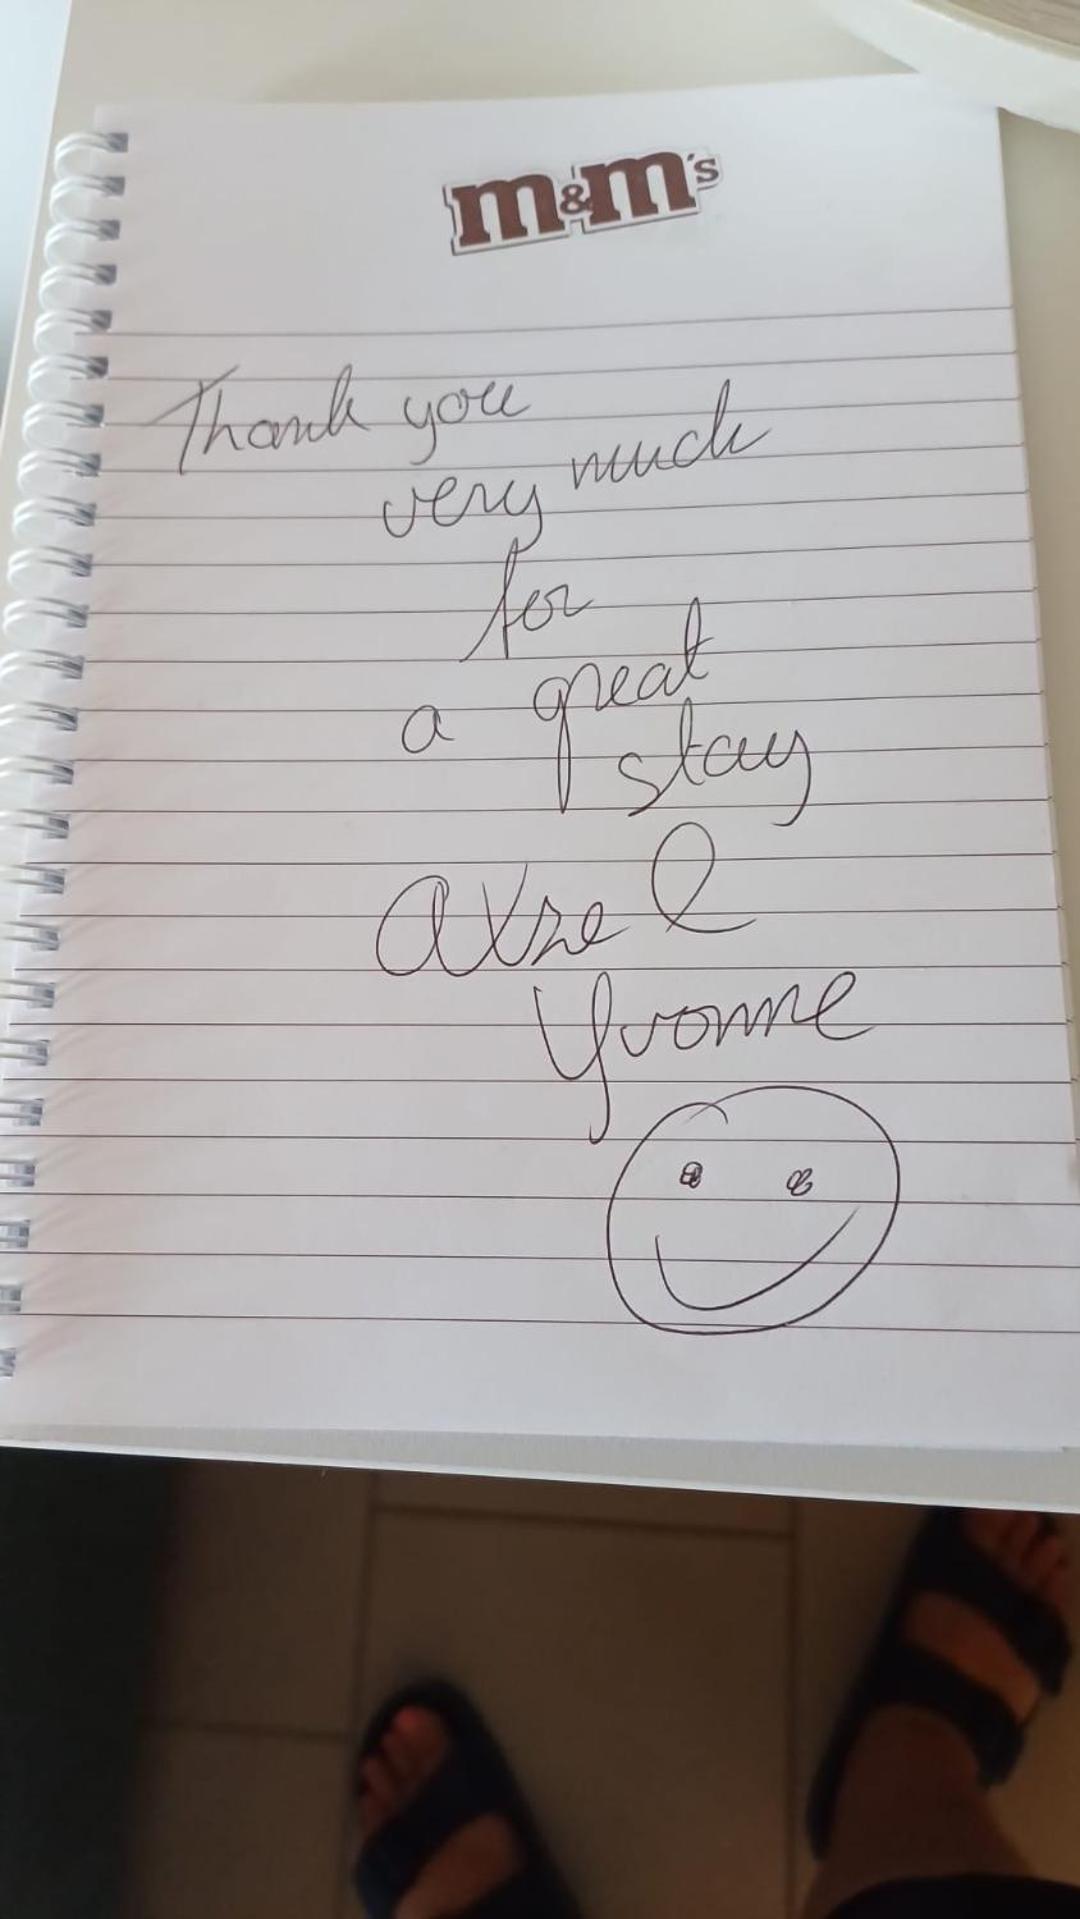 m&m's
Thank you
very much
for
a great
stay
Axel
Yvonne